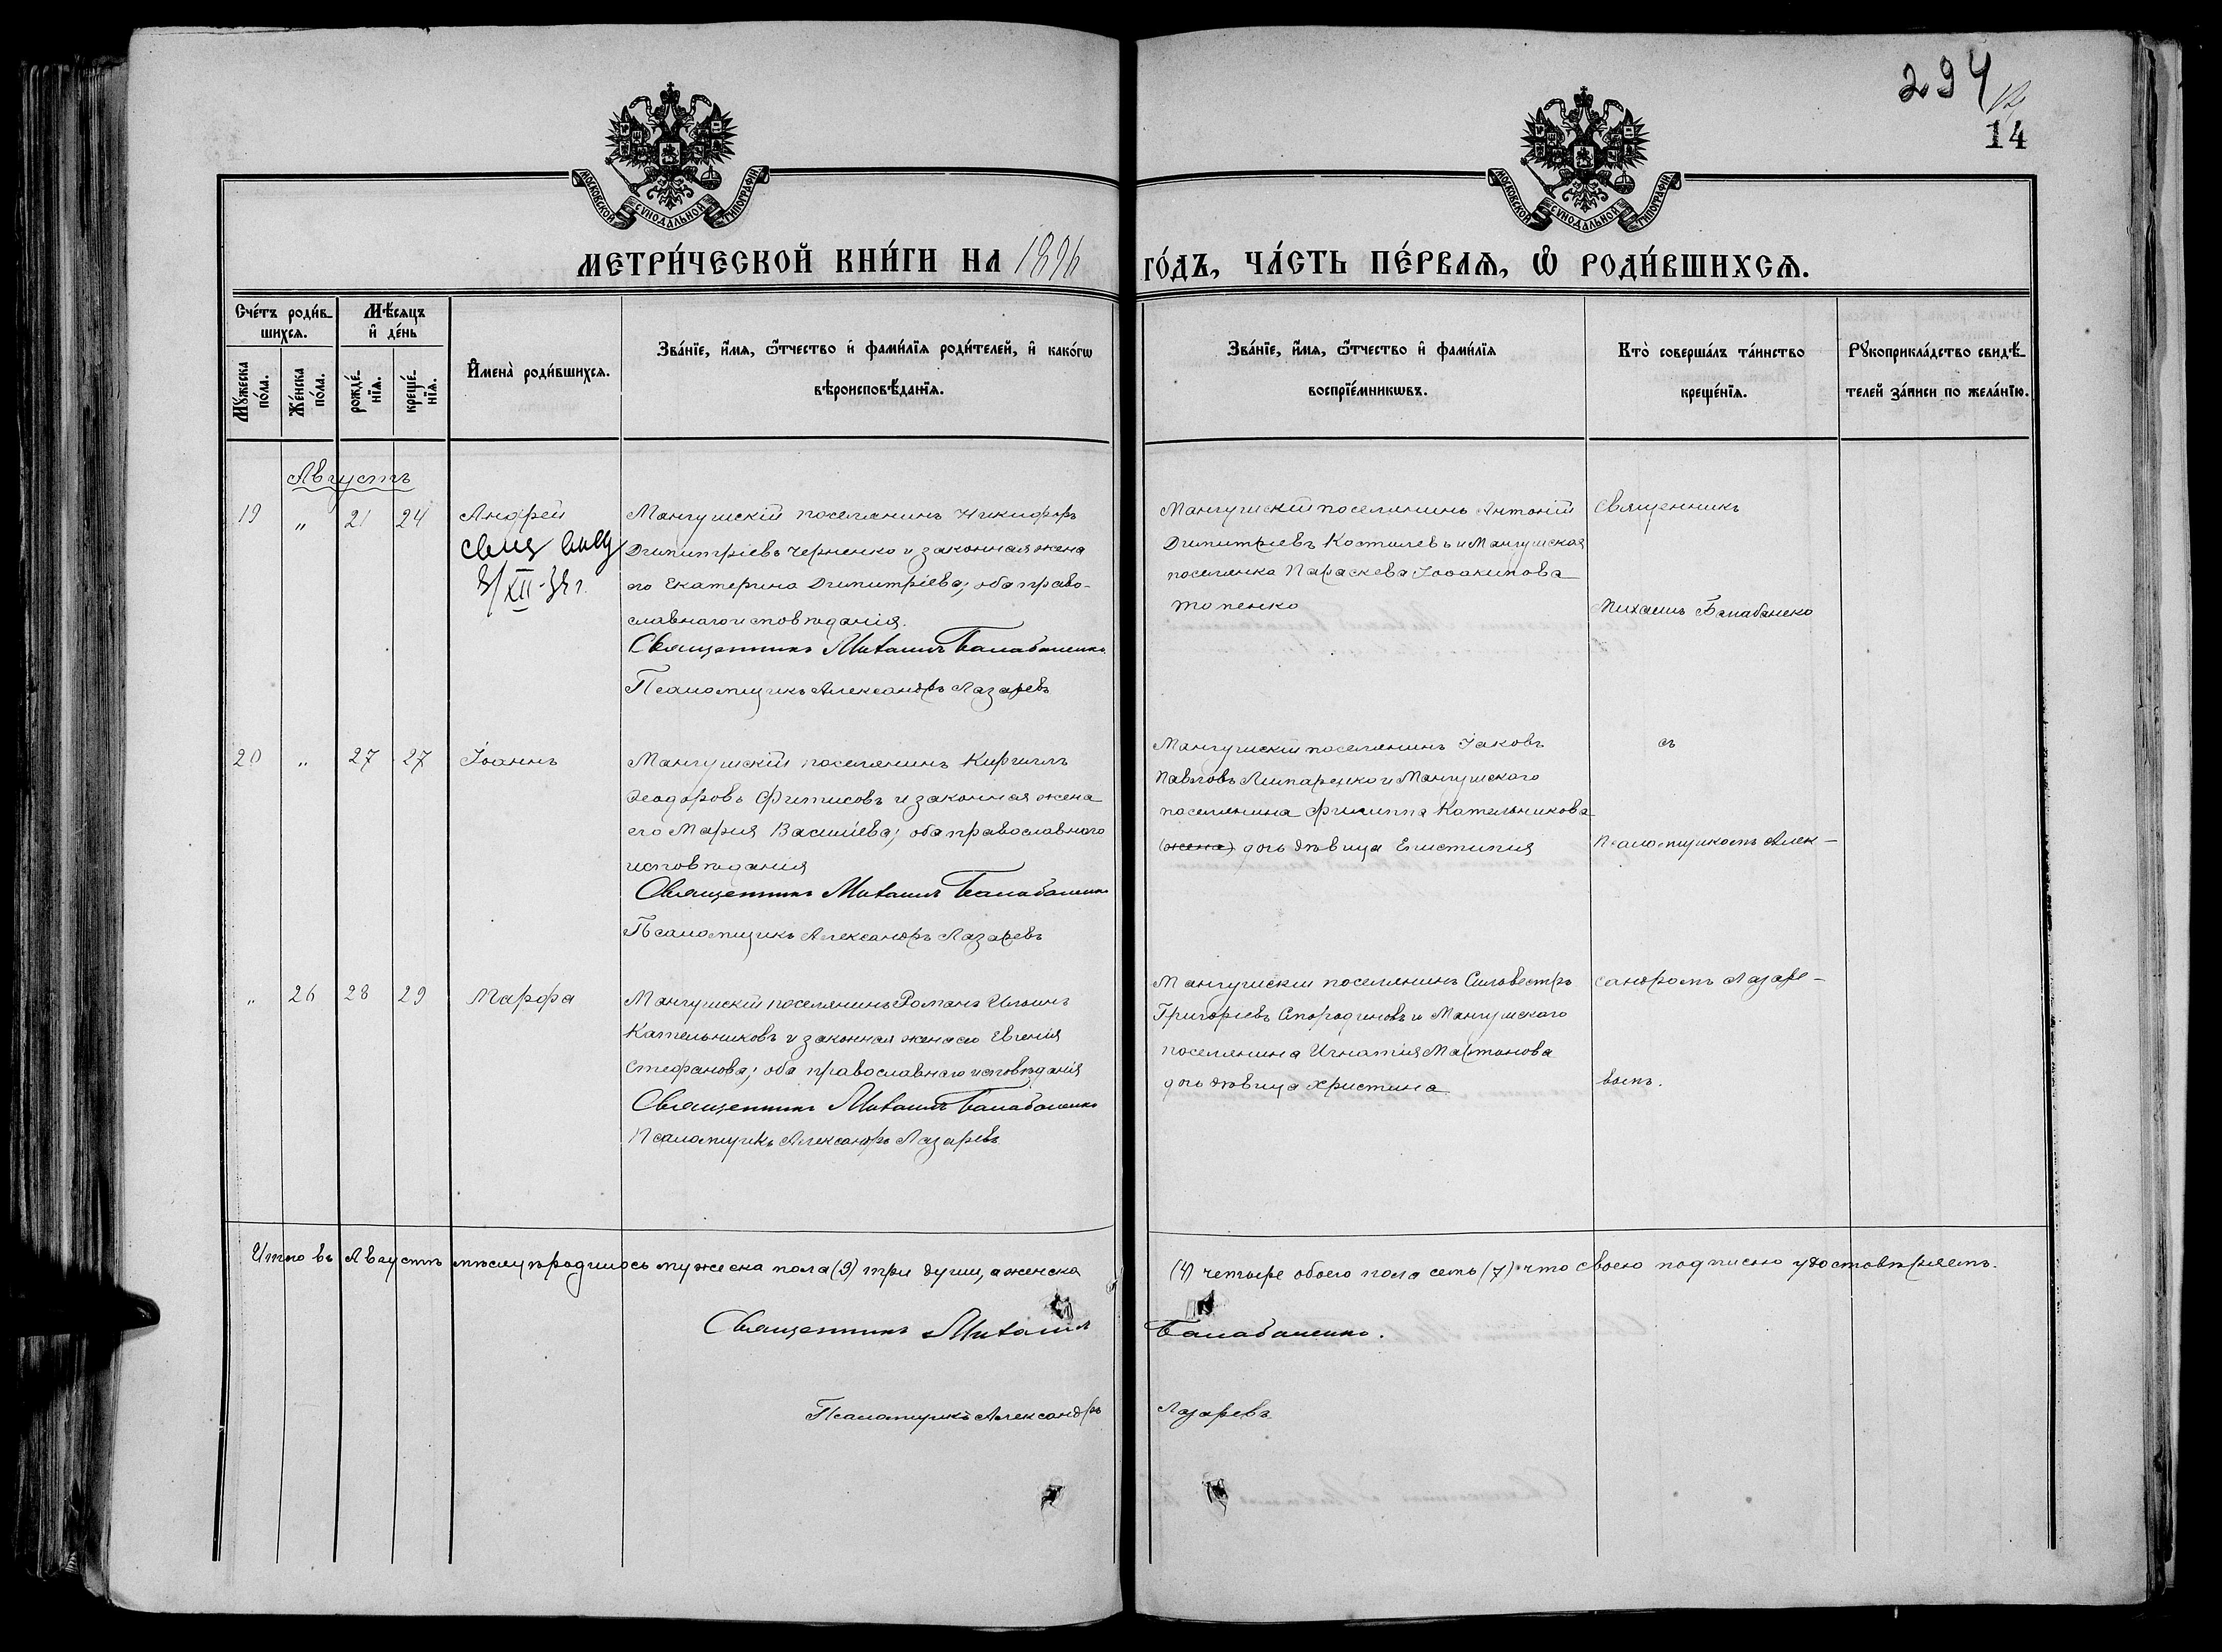 294
14
МОСКОВСКОЙ СѴНОДАЛЬНОЙ ТИПОГРАФІИ
МОСКОВСКОЙ СѴНОДАЛЬНОЙ ТИПОГРАФІИ
МЕТРИ́ЧЕСКОЙ КНИ́ГИ НА 1896
ГО́ДЪ, ЧА́СТЬ ПЕ́РВАѦ, Ѽ РОДИ́ВШИХСѦ.
Сче́тъ роди́в-
шихсѧ.
Мꙋ́жеска по́ла.
Же́нска по́ла.
Мѣ́сѧцъ
и҆ де́нь
рожде́-нїѧ.
креще́-нїѧ.
И҆мена̀ роди́вшихсѧ.
Зва́нїе, и҆́мѧ, ѻ҆́тчество и҆ фами́лїѧ роди́телей, и҆ како́гѡ
вѣроисповѣ́данїѧ.
Зва́нїе, и҆́мѧ, ѻ҆́тчество и҆ фами́лїѧ
воспрїе́мникѡвъ.
Кто̀ соверша́лъ та́инство
креще́нїѧ.
Рꙋкоприкла́дство свидѣ́-
телей за́писи по жела́нїю.
Августъ
19 „ 21 24 Андрей
Мангушскій поселянинъ Никифоръ
Димитріевъ Черненко и законная жена
его Екатерина Димитріева; оба право-
славнаго исповѣданія.
Священникъ Михаилъ Балабаненко
Псаломщикъ Александръ Лазаревъ
Мангушскій поселянинъ Антоній
Димитріевъ и Мангушская
поселянка Параскева Іоакимова
Топенко
Священникъ
Михаилъ Балабаненко
20 „ 27 27 Іоаннъ
Мангушскій поселянинъ Кириллъ
Ѳеодоровъ Фитисовъ и законная жена
его Марія Васильева; оба православнаго
исповѣданія
Священникъ Михаилъ Балабаненко
Псаломщикъ Александръ Лазаревъ
Мангушскій поселянинъ Іаковъ
Павловъ и Мангушскаго
поселянина Филиппа Кательникова
(жена) дочь дѣвица Епистимія
съ
Псаломщикомъ Алек-
„ 26 28 29 Марфа
Мангушскій поселянинъ Романъ Ильинъ
Кательниковъ и законная жена его Евгенія
Стефанова; оба православнаго исповѣданія
Священникъ Михаилъ Балабаненко
Псаломщикъ Александръ Лазаревъ
Мангушскій поселянинъ Сильвестръ
Григоріевъ и Мангушскаго
поселянина Игнатія Мартонова
дочь дѣвица Христина
сандромъ Лазаре-
вымъ.
Итого въ Августѣ мѣсяцѣ родилось мужеска пола (3) три души, а женска
(4) четыре обоего пола семь (7) что своею подписью удостовѣряемъ.
Священникъ Михаилъ
Балабаненко.
Псаломщикъ Александръ
Лазаревъ